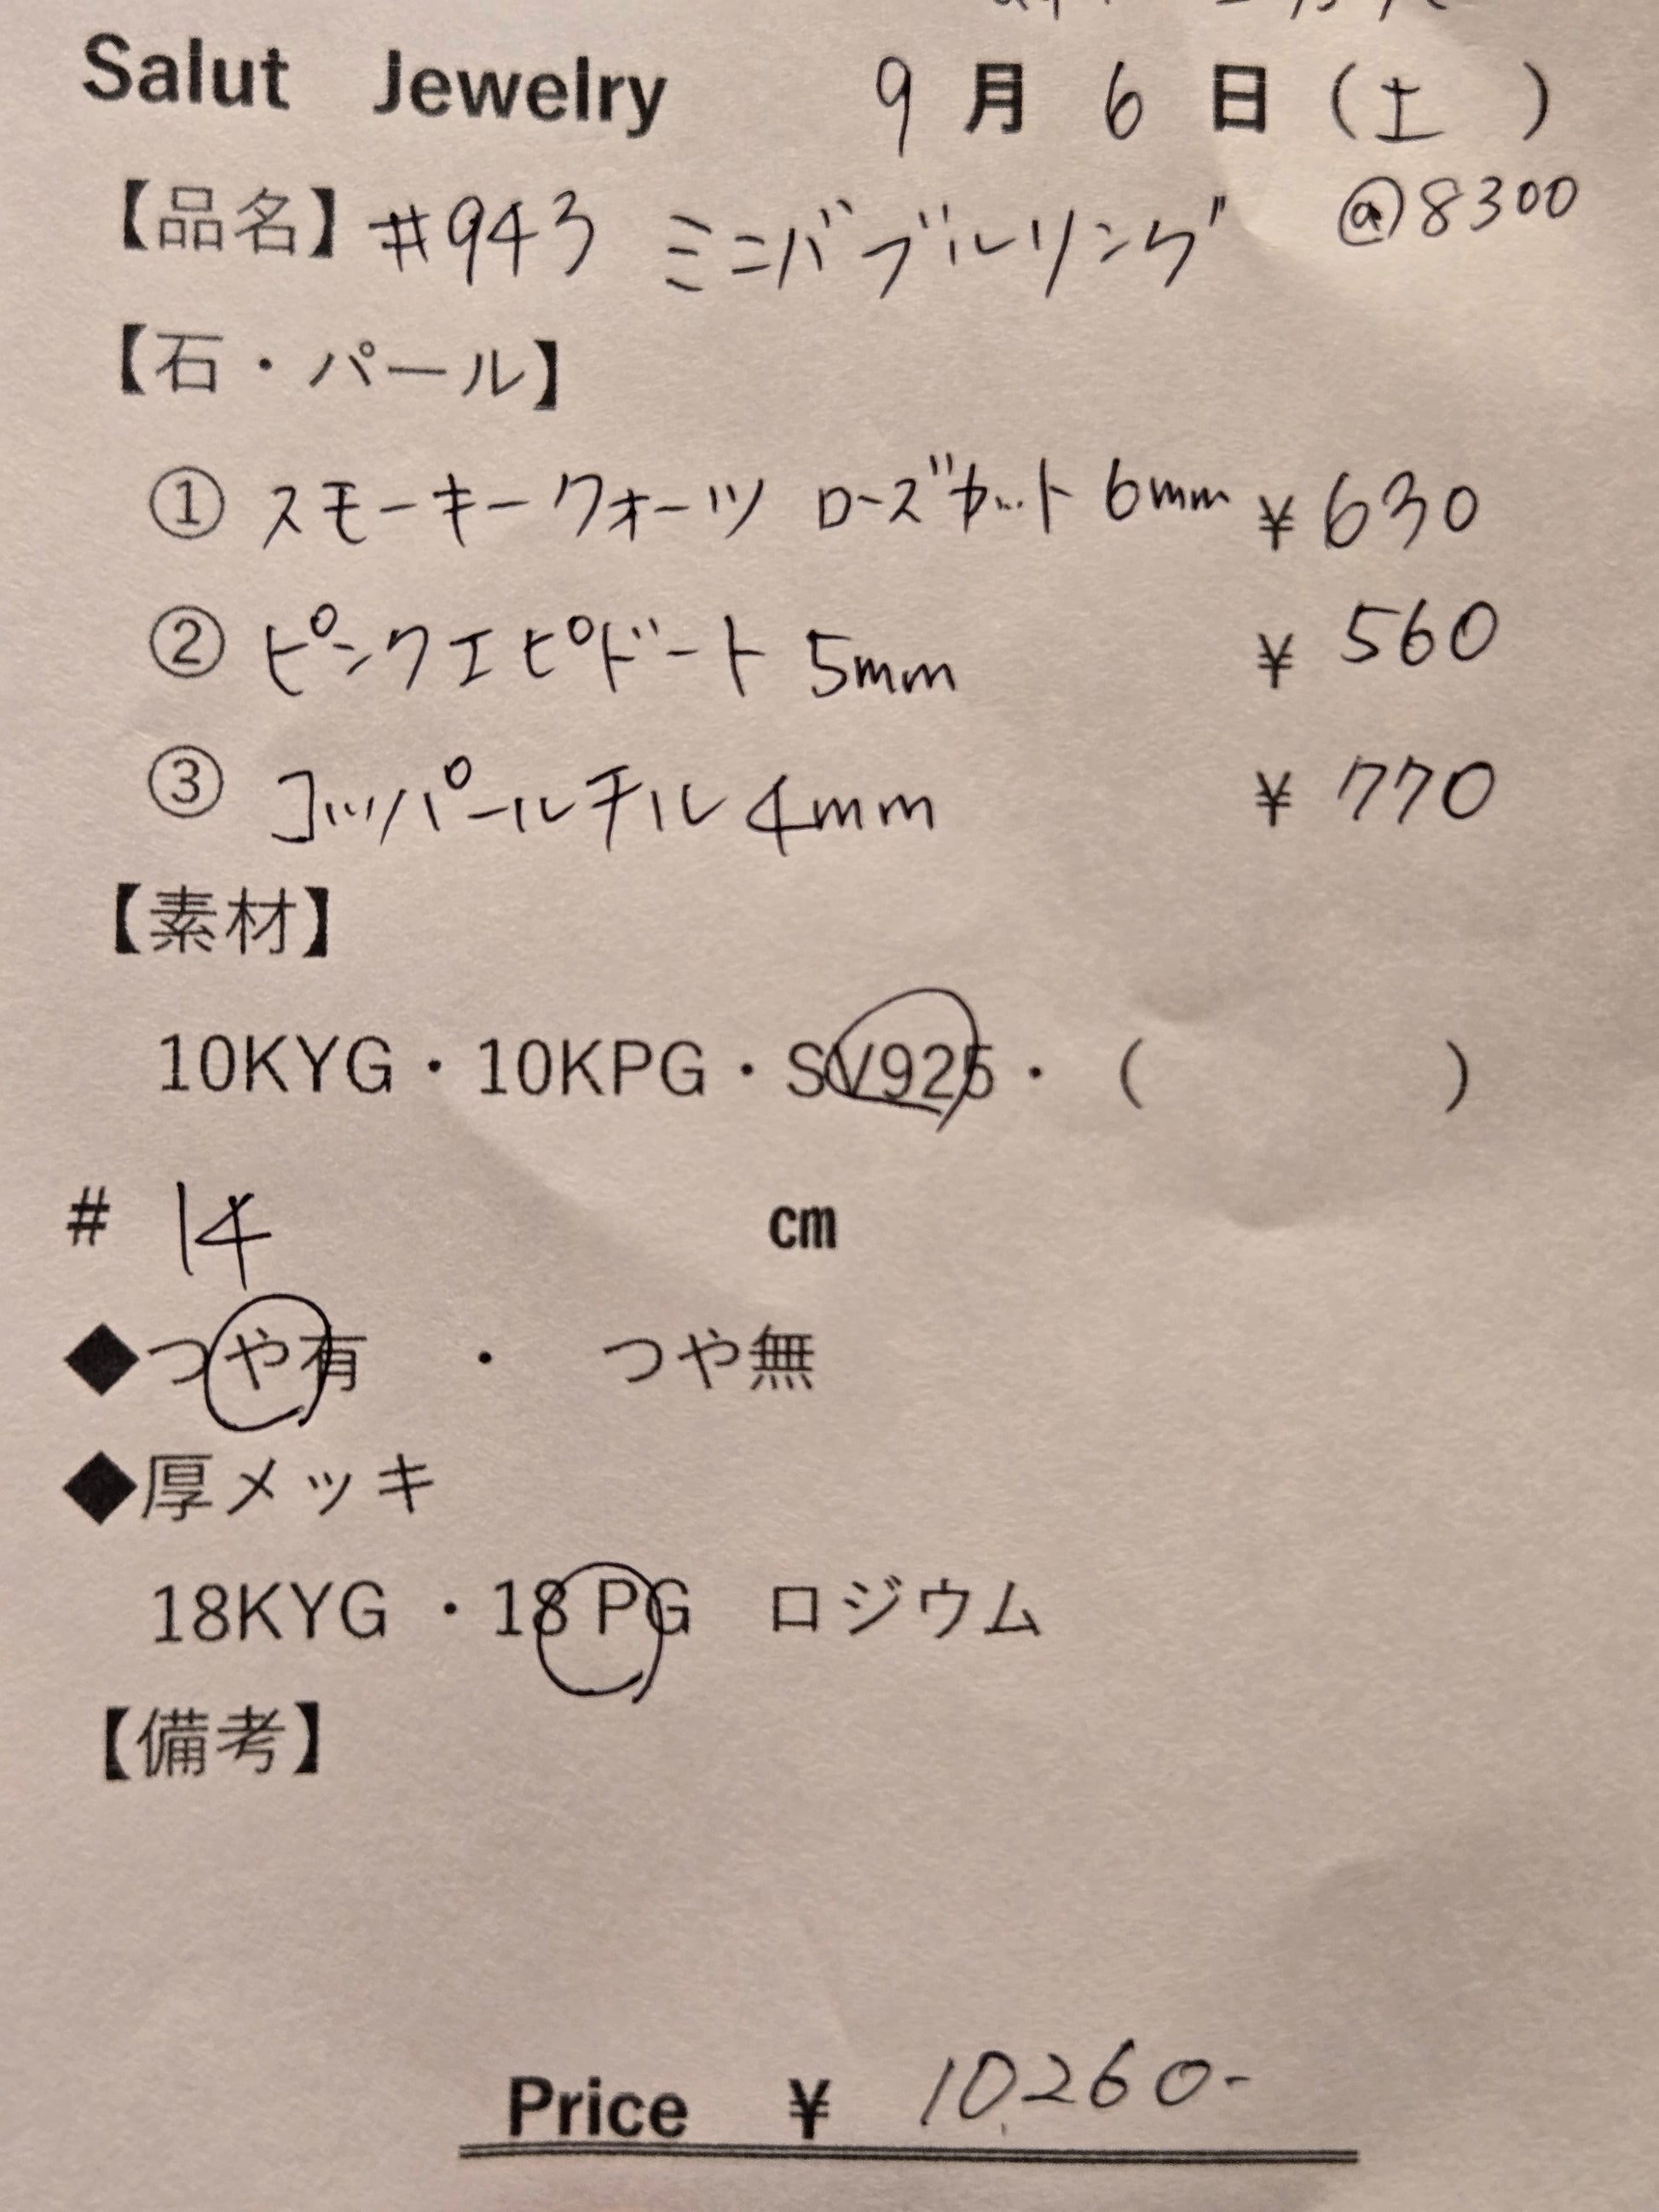 Salut Jewelry 9月6日(土)
【品名】#943 ミニバブルリング @8300
【石・パール】
① スモーキークォーツ ローズカット 6mm ¥630
② ピンクエピドート 5mm ¥560
③ コッパールチル 4mm ¥770
【素材】
10KYG・10KPG・SV925・( )
# 14 cm
◆つや有 ・ つや無
◆厚メッキ
18KYG ・18 PG ロジウム
【備考】
Price ¥ 10,260-